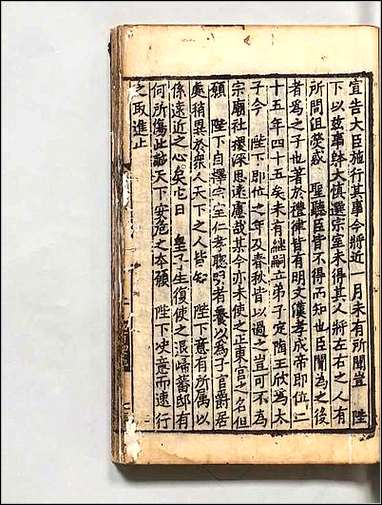 宣告大臣施行其事今將近一月未有所聞豈 陛
下以玆事體大慎選宗室未得其人將左右之人有
所間沮熒惑 聖聽臣皆不得而知也臣聞為之後
者為之子也著於禮律皆有明文漢孝成帝即位二
十五年四十五矣未有継嗣立弟子定陶王欣為太
子今 陛下即位之年及春秋皆以過之豈可不為
宗廟社稷深思遠慮哉其今亦未使之正東宮之名但
願 陛下自擇宗室仁孝聰明者養以為子官爵居
處稍異於衆人天下之人皆知 陛下意有所属以
係遠近之心矣它日 皇子生復使之退歸蕃邸有
何所傷此誠天下安危之本願 陛下决意而速行
之取進止